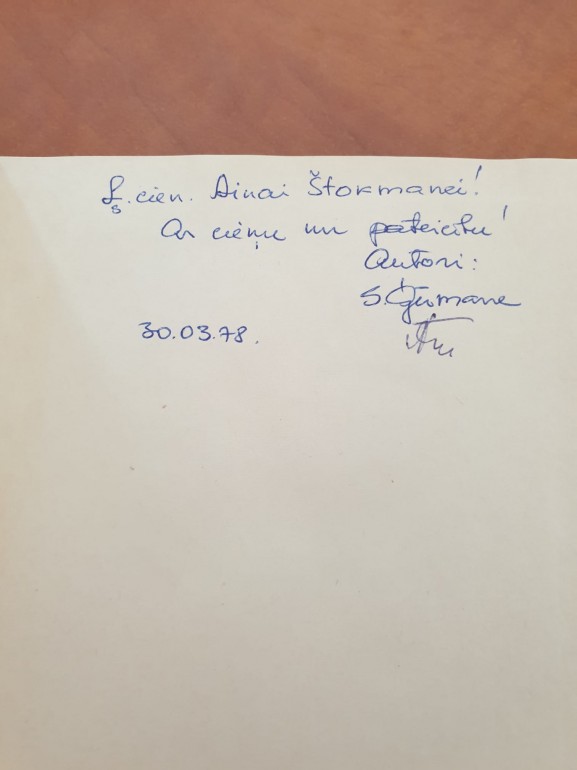 Ļ.cien. Ainai Štokmanei!
Ar cieņu un pateicību!
Autori:
S.
30.03.78.